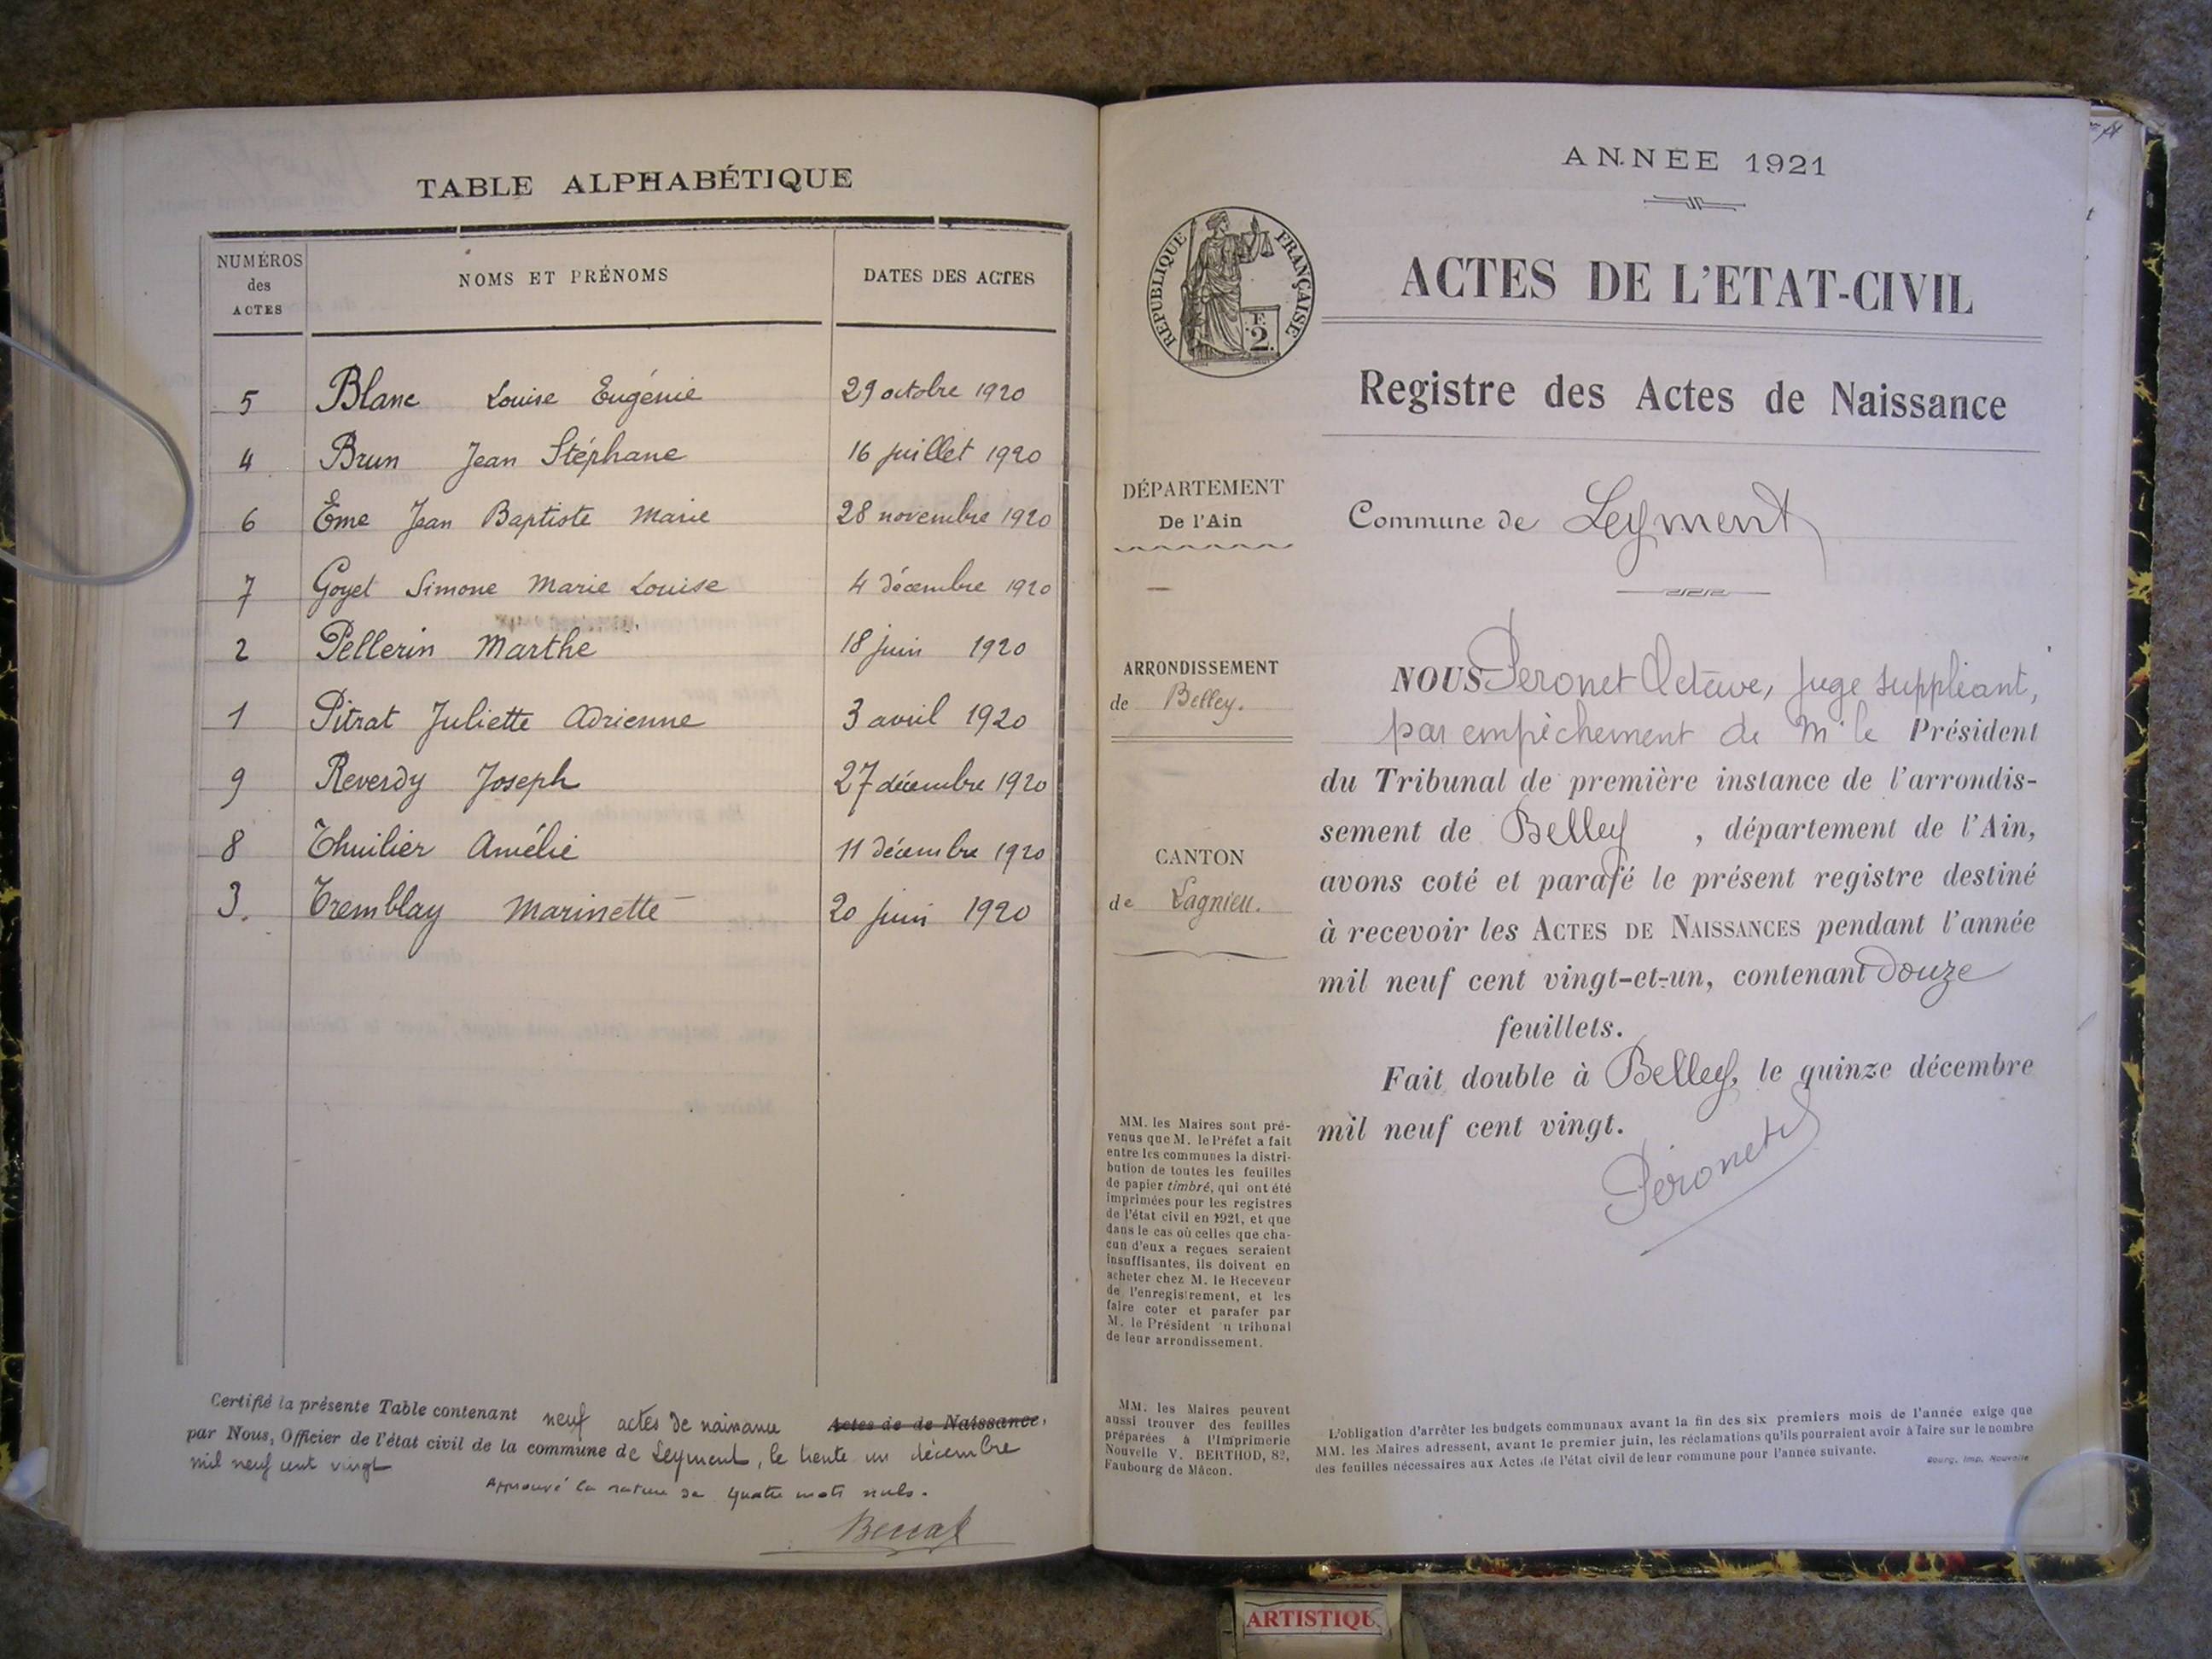 TABLE ALPHABÉTIQUE
NUMÉROS des ACTES NOMS ET PRÉNOMS DATES DES ACTES
5 Blanc Louise Eugénie 29 octobre 1920
4 Brun Jean Stéphane 16 juillet 1920
6 Eme Jean Baptiste Marie 28 novembre 1920
7 Goyet Simone Marie Louise 4 décembre 1920
2 Pellerin Marthe 18 juin 1920
1 Pitrat Juliette Adrienne 3 avril 1920
9 Reverdy Joseph 27 décembre 1920
8 Thuilier Amélie 11 décembre 1920
3. Tremblay Marinette 20 juin 1920
Certifié la présente Table contenant neuf actes de naissance Actes de de Naissance,
par Nous, Officier de l'état civil de la commune de Leyment, le trente un décembre
mil neuf cent vingt
Approuvé la rature de quatre mots nuls.
ANNEE 1921
RÉPUBLIQUE FRANÇAISE
F.
2.
ACTES DE L'ETAT-CIVIL
Registre des Actes de Naissance
DÉPARTEMENT
De l'Ain
Commune de Leyment
ARRONDISSEMENT
de Belley.
CANTON
de Lagnieu.
NOUS Peronet Octave, juge suppléant,
par empêchement de Mr le Président
du Tribunal de première instance de l'arrondis-
sement de Belley, département de l'Ain,
avons coté et parafé le présent registre destiné
à recevoir les ACTES DE NAISSANCES pendant l'année
mil neuf cent vingt-et-un, contenant douze
feuillets.
Fait double à Belley, le quinze décembre
mil neuf cent vingt.
Péronet
MM. les Maires sont pré-
venus que M. le Préfet a fait
entre les communes la distri-
bution de toutes les feuilles
de papier timbré, qui ont été
imprimées pour les registres
de l'état civil en 1921, et que
dans le cas où celles que cha-
cun d'eux a reçues seraient
insuffisantes, ils doivent en
acheter chez M. le Receveur
de l'enregistrement, et les
faire coter et parafer par
M. le Président u tribunal
de leur arrondissement.
MM. les Maires peuvent
aussi trouver des feuilles
préparées à l'Imprimerie
Nouvelle V. BERTHOD, 82,
Faubourg de Mâcon.
L'obligation d'arrêter les budgets communaux avant la fin des six premiers mois de l'année exige que
MM. les Maires adressent, avant le premier juin, les réclamations qu'ils pourraient avoir à faire sur le nombre
des feuilles nécessaires aux Actes de l'état civil de leur commune pour l'année suivante.
Bourg, Imp. Nouvelle
ARTISTIQU